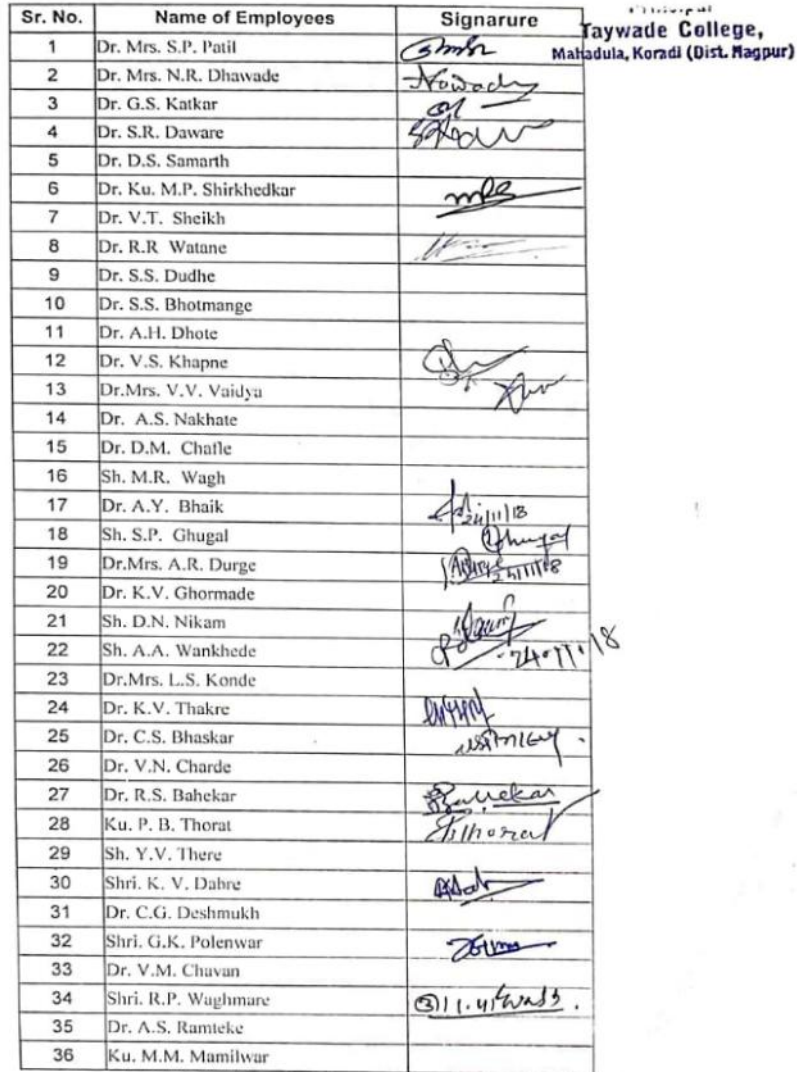 Principal
Taywade College,
Mahadula, Koradi (Dist. Nagpur)
Sr. No. Name of Employees Signarure
1 Dr. Mrs. S.P. Patil
2 Dr. Mrs. N.R. Dhawade
3 Dr. G.S. Katkar
4 Dr. S.R. Daware
5 Dr. D.S. Samarth
6 Dr. Ku. M.P. Shirkhedkar
7 Dr. V.T. Sheikh
8 Dr. R.R Watane
9 Dr. S.S. Dudhe
10 Dr. S.S. Bhotmange
11 Dr. A.H. Dhote
12 Dr. V.S. Khapne
13 Dr.Mrs. V.V. Vaidya
14 Dr. A.S. Nakhate
15 Dr. D.M. Chafle
16 Sh. M.R. Wagh
17 Dr. A.Y. Bhaik 24/11/18
18 Sh. S.P. Ghugal Ghugal
19 Dr.Mrs. A.R. Durge 24/11/18
20 Dr. K.V. Ghormade
21 Sh. D.N. Nikam
22 Sh. A.A. Wankhede 24.11.18
23 Dr.Mrs. L.S. Konde
24 Dr. K.V. Thakre
25 Dr. C.S. Bhaskar
26 Dr. V.N. Charde
27 Dr. R.S. Bahekar Bahekar
28 Ku. P. B. Thorat Thorat
29 Sh. Y.V. There
30 Shri. K. V. Dabre
31 Dr. C.G. Deshmukh
32 Shri. G.K. Polenwar
33 Dr. V.M. Chavan
34 Shri. R.P. Waghmare
35 Dr. A.S. Ramteke
36 Ku. M.M. Mamilwar